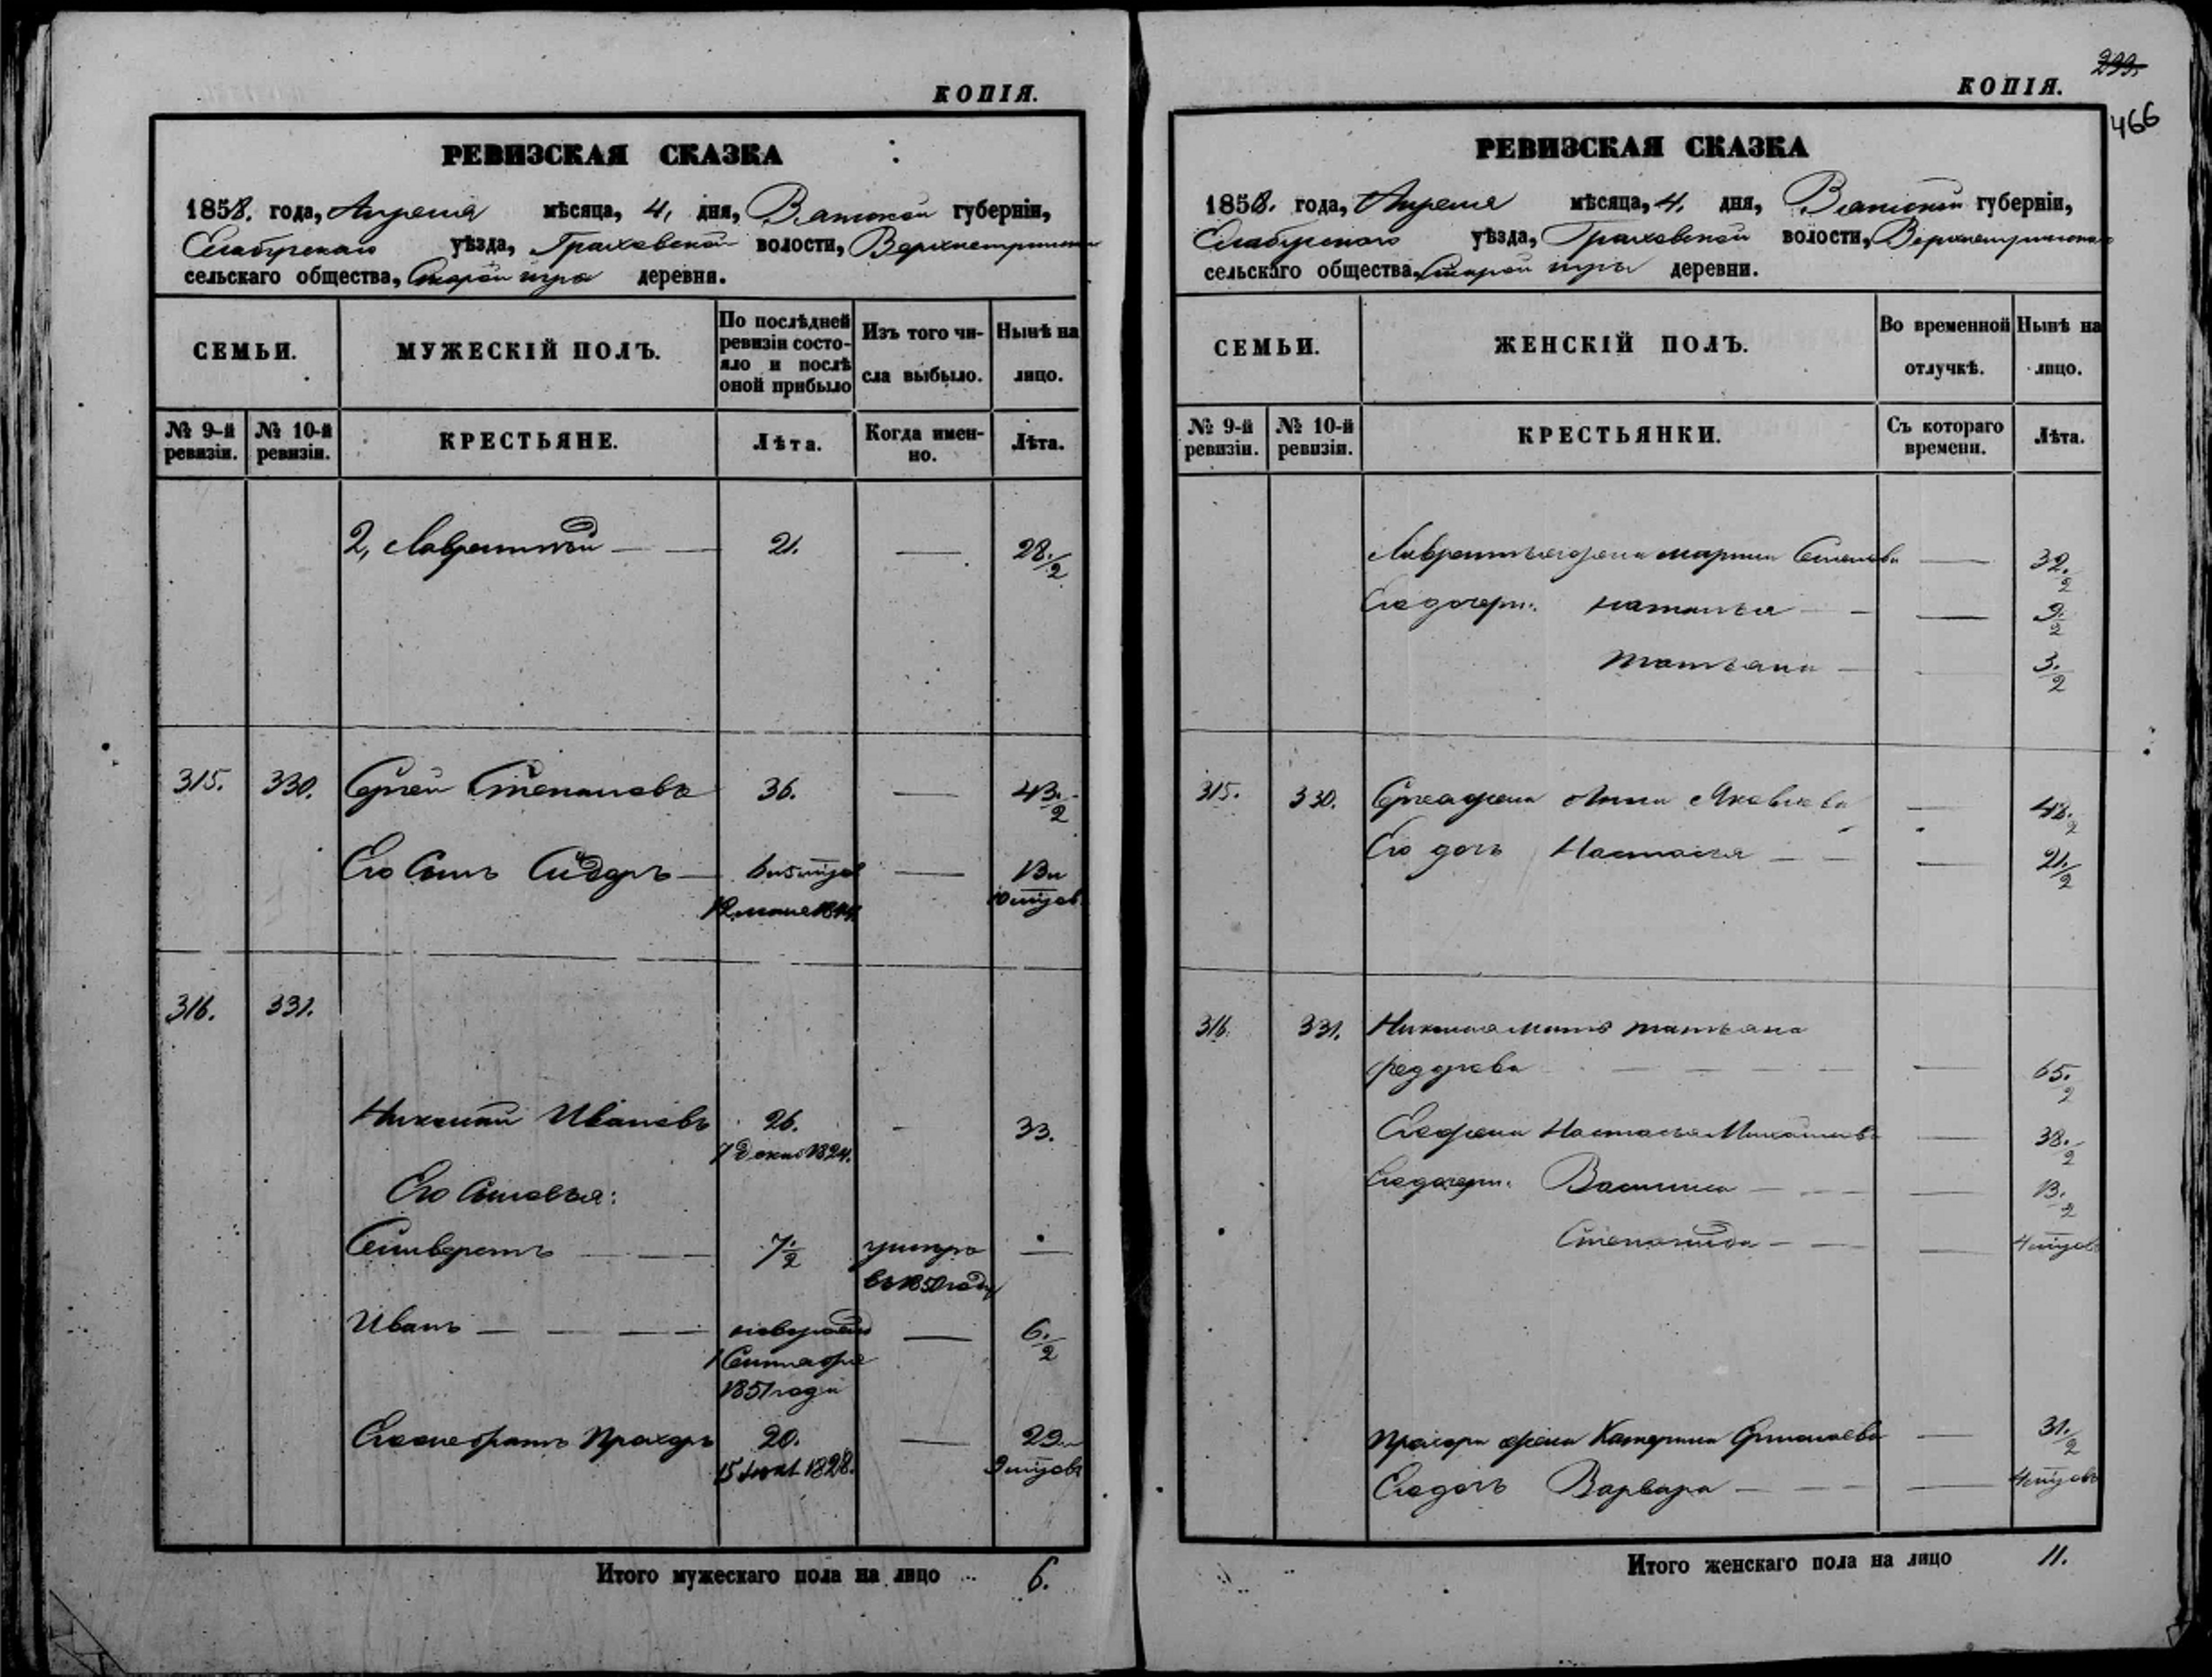 КОПІЯ.
РЕВИЗСКАЯ СКАЗКА
1858. года, Апреля мѣсяца, 4, дня, Вятской губерніи,
Елабужскаго уѣзда, Граховской волости,
сельскаго общества, Старой игры деревни.
СЕМЬИ.
МУЖЕСКІЙ ПОЛЪ.
По послѣдней ревизіи состояло и послѣ оной прибыло
Изъ того числа выбыло.
Нынѣ на лицо.
№ 9-й ревизіи.
№ 10-й ревизіи.
КРЕСТЬЯНЕ.
Лѣта.
Когда именно.
Лѣта.
2, Лаврентий — — 21. — 28 1/2
315. 330. Сергей Степановъ 36. — 43 1/2
Его Сынъ Сидоръ — 6 и 5 мѣсяц — 13 и
10 мѣсяцов
316. 331.
Николай Ивановъ 26. - 33.
7 Декаб 1824.
Его Сыновья:
Селиверстъ — — 7 1/2 умеръ —
въ 1850 году
Иванъ — — — — новорожд — 6 1/2
1 Сентября
1851 года
Братъ Прохоръ 20. — 29 и
1828. 9 мѣсяцовъ
Итого мужескаго пола на лицо 6.
КОПІЯ.
466
РЕВИЗСКАЯ СКАЗКА
1858. года, Апреля мѣсяца, 4. дня, Вятской губерніи,
Елабужскаго уѣзда, Граховской волости,
сельскаго общества, Старой игры деревни.
СЕМЬИ.
ЖЕНСКІЙ ПОЛЪ.
Во временной отлучкѣ.
Нынѣ на лицо.
№ 9-й ревизіи.
№ 10-й ревизіи.
КРЕСТЬЯНКИ.
Съ котораго времени.
Лѣта.
Лаврентья жена Марина Семенова — 32 1/2
Его дочери: Наталья — — 9 1/2
Татьяна — 3 1/2
315. 330. Сергея жена Анна Яковлева — 42 1/2
Его дочь Настасья — — — 21 1/2
316. 331. Николая мать Татьяна
Федорова — — — — — 65 1/2
Его жена Настасья Михайлова — 38 1/2
Его дочери: Василиса — — — 13 1/2
Степанида — — — 4 мѣсяцов
Прохора жена Катерина Ермолаева — 31 1/2
Его дочь Варвара — — — — 4 мѣсяцовъ
Итого женскаго пола на лицо 11.